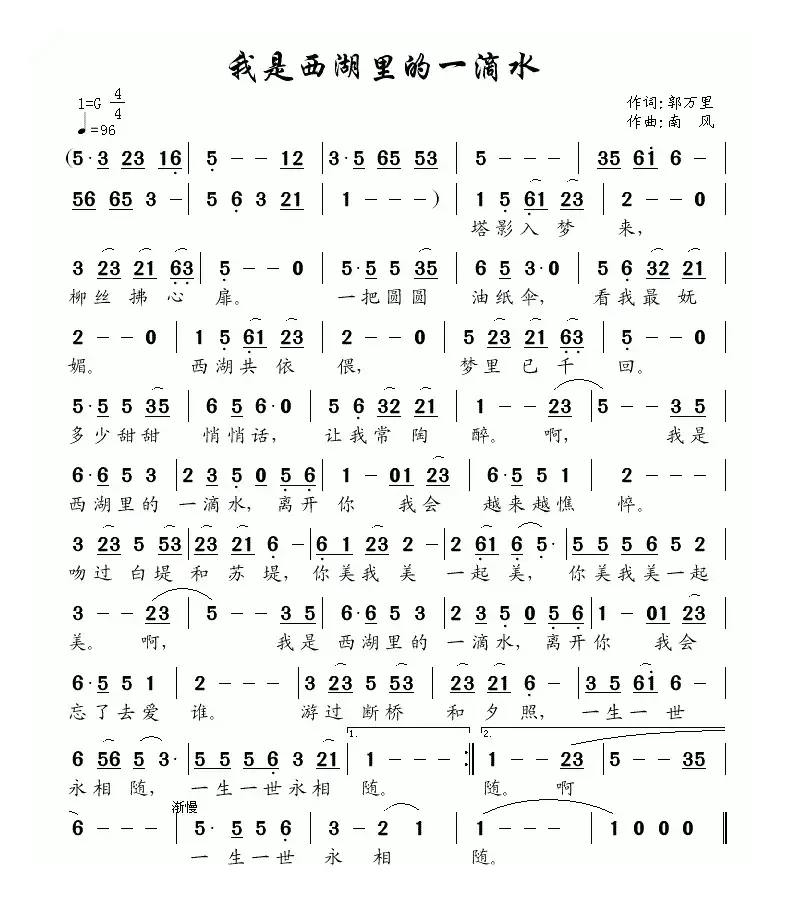 我是西湖里的一滴水
1=G 4/4
♩=96
作词:郭万里
作曲:南 风
(5·3 23 16 | 5 - - 12 | 3·5 65 53 | 5 - - - | 35 61 6 - |
56 65 3 - | 5 6 3 21 | 1 - - - ) | 1 5 61 23 | 2 - - 0 |
塔影入 梦 来,
3 23 21 63 | 5 - - 0 | 5·5 5 35 | 6 5 3·0 | 5 6 32 21 |
柳丝 拂 心 扉。 一把圆圆 油纸伞, 看我最 妩
2 - - 0 | 1 5 61 23 | 2 - - 0 | 5 23 21 63 | 5 - - 0 |
媚。 西湖共 依 偎, 梦里 已 千 回。
5·5 5 35 | 6 5 6·0 | 5 6 32 21 | 1 - - 23 | 5 - - 3 5 |
多少甜甜 悄悄话, 让我常 陶 醉。 啊, 我是
6·6 5 3 | 2 3 5 0 5 6 | 1 - 01 23 | 6·5 5 1 | 2 - - - |
西湖里的 一滴水, 离开你 我会 越来越憔 悴。
3 23 5 53 | 23 21 6 - | 6 1 23 2 - | 2 61 6 5· | 5 5 5 6 5 2 |
吻过 白堤 和 苏 堤, 你美我 美 一起 美, 你美我美一起
3 - - 23 | 5 - - 3 5 | 6·6 5 3 | 2 3 5 0 5 6 | 1 - 01 23 |
美。 啊, 我是 西湖里的 一滴水, 离开你 我会
6·5 5 1 | 2 - - - | 3 23 5 53 | 23 21 6 - | 3 5 61 6 - |
忘了去爱 谁。 游过 断桥 和 夕 照, 一生一 世
6 56 5 3· | 5 5 5 6 3 21 | 1. 1 - - - :‖ 2. 1 - - 23 | 5 - - 35 |
永相 随, 一生一世永相 随。 随。 啊
渐慢
6 - - - | 5· 5 5 6 | 3 - 2 1 | 1 - - - | 1 0 0 0 ‖
一生一世 永 相 随。